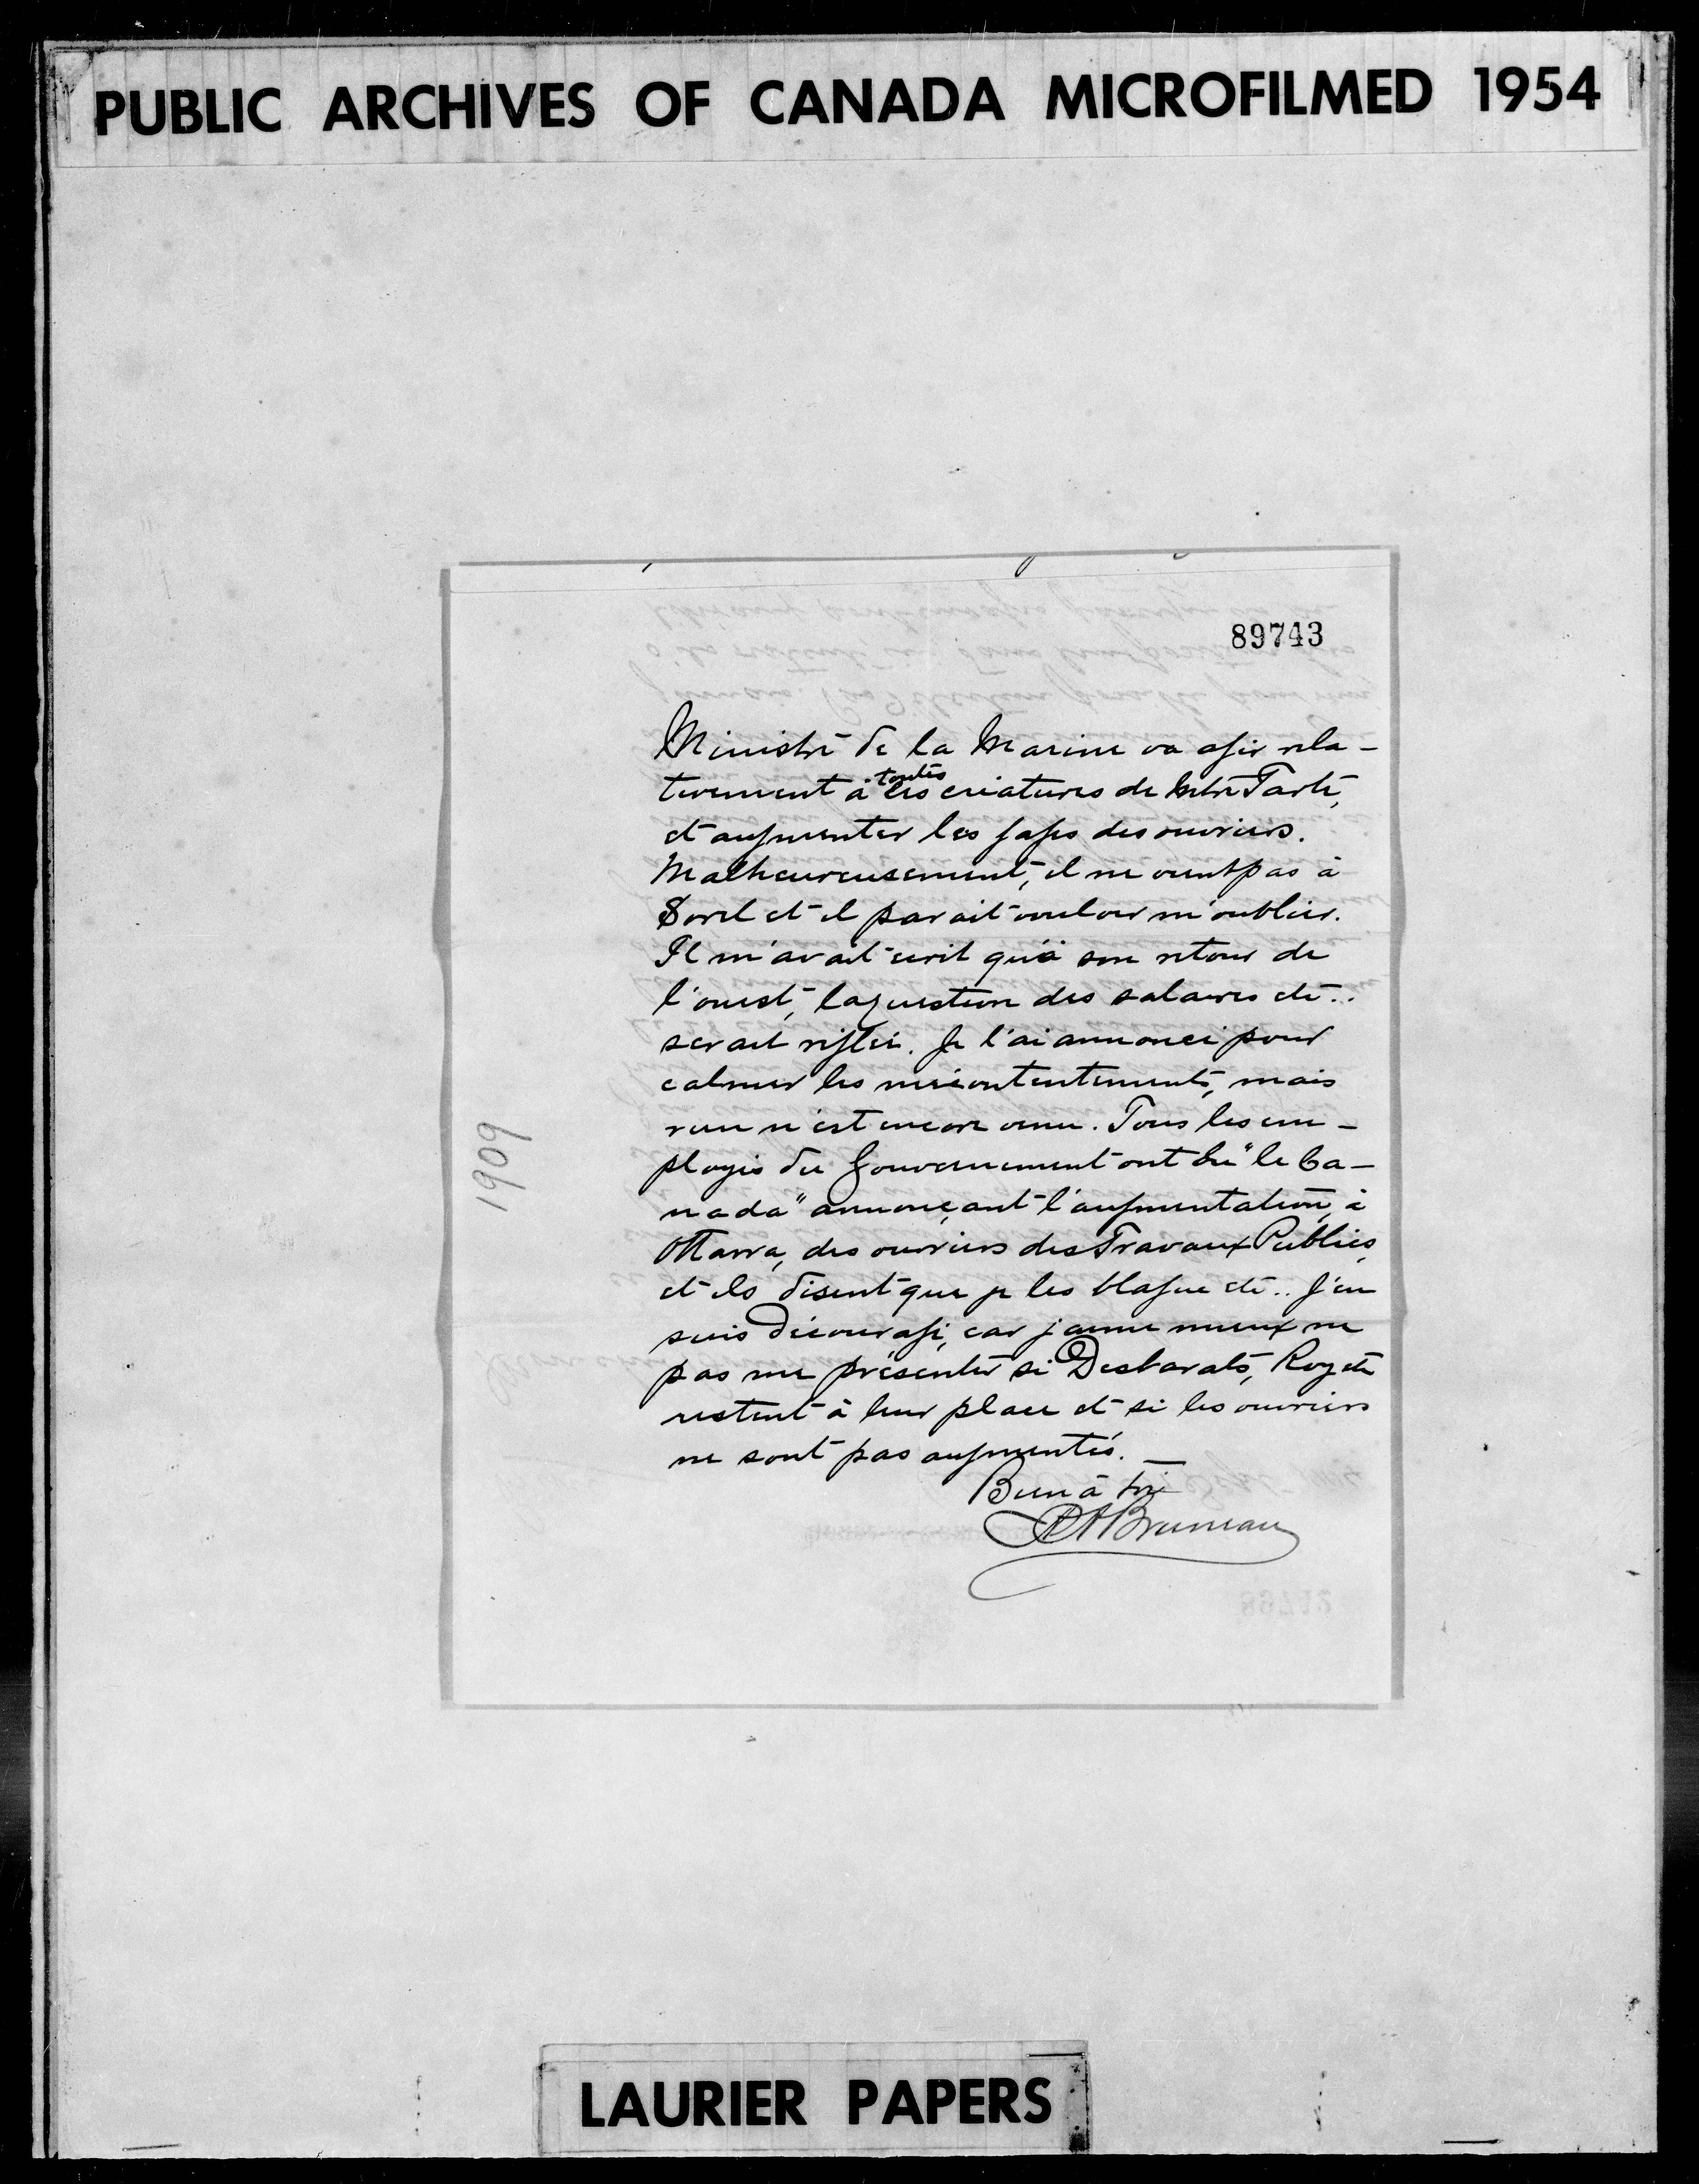 PUBLIC ARCHIVES OF CANADA MICROFILMED 1954
89743
Ministre de la Marine va agir rela-
tivement à toutes les créatures de Mtre Tarte,
et augmenter les gages des ouvriers.
Malheureusement, il ne vient pas à
Sorel et il parait vouloir m'oublier.
Il m'avait écrit qu'à son retour de
l'ouest, la question des salaires etc..
serait réglée. Je l'ai annoncé pour
calmer les mécontentements, mais
rien n'est encore venu. Tous les em-
ployés du Gouvernement ont lu "le Ca-
nada" annonçant l'augmentation, à
Ottawa, des ouvriers des Travaux Publics,
et ils disent que je les blague etc.. J'en
suis découragé, car j'aime mieux ne
pas me présenter si Desbarats, Roy etc
restent à leur place et si les ouvriers
ne sont pas augmentés.
Bien à toi
PABruneau
1909
LAURIER PAPERS